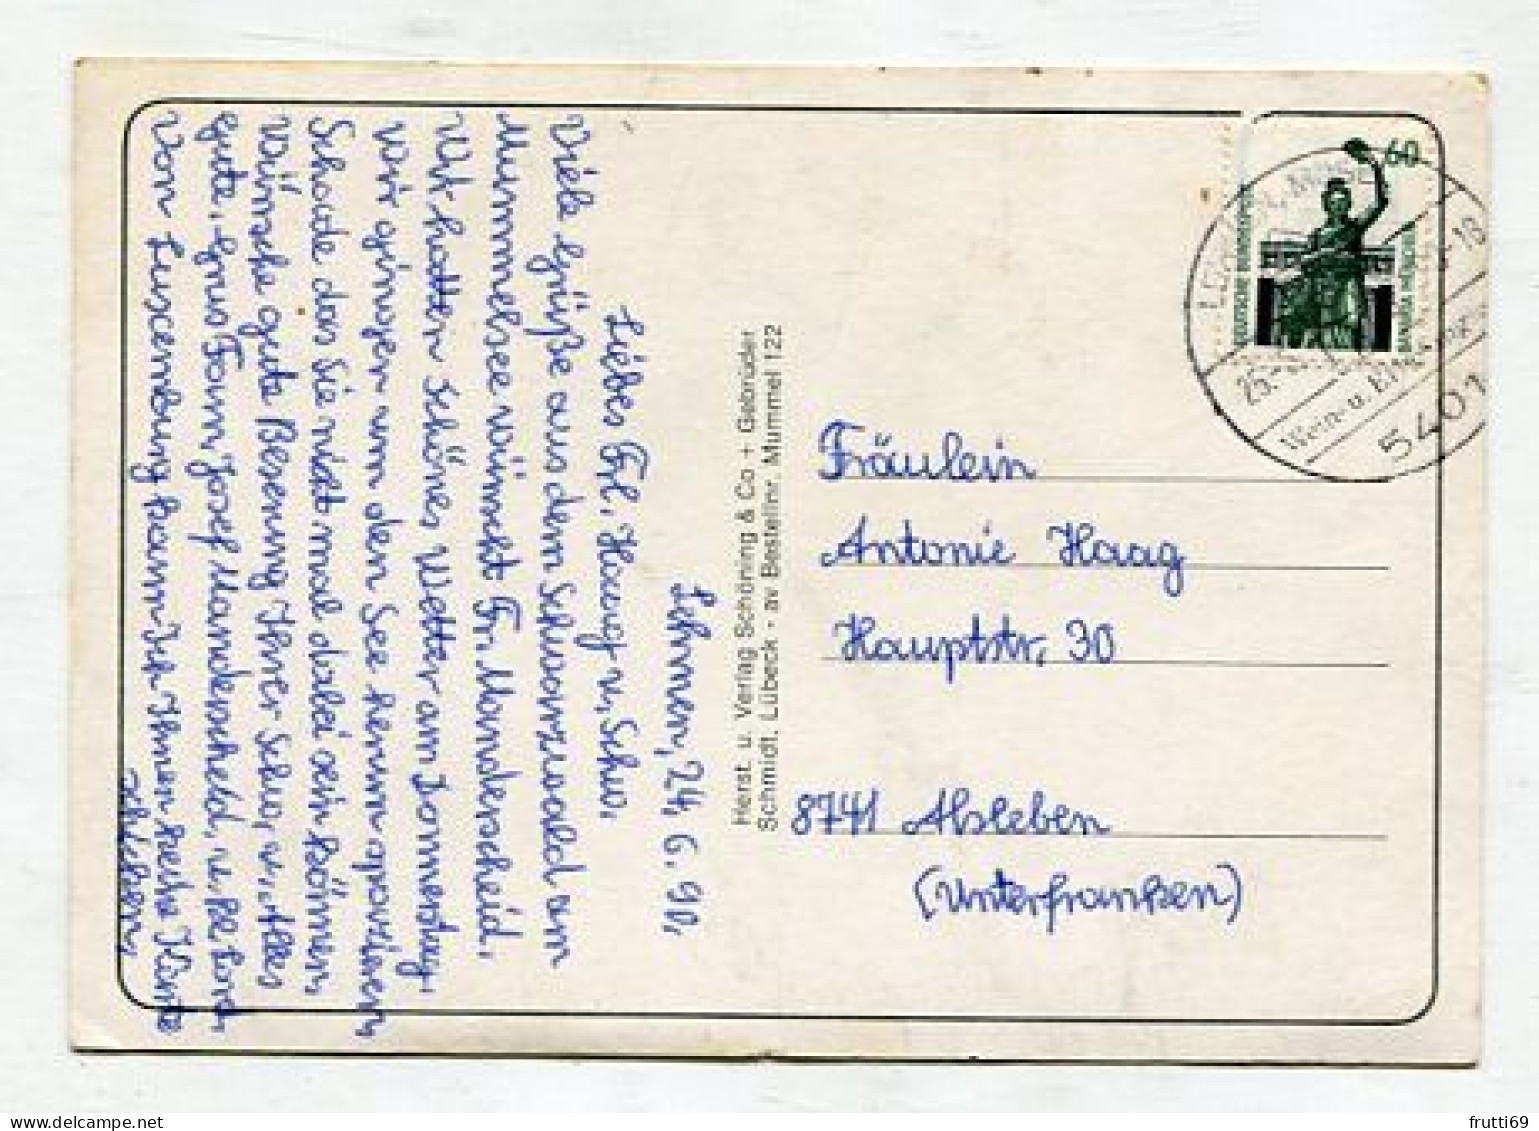 Lehmen, 24. 6. 90,
Liebes Frl. Haag u, Schw,
Viele Grüße aus dem Schwarzwald am
Mummelsee wünscht Fr. Manderscheid,
Wir hatten schönes Wetter am Sonnerstag,
wir gingen um den See herum spazieren,
Schade das Sie nist mal dabei sein können,
Wünsche gute Besserung Ihrer Schw, u, Alles
gute, Grus Fam, Josef Manderscheid, u.
Von Luxemburg kann Ich Ihnen keine Karte
schicken,
Herst. u. Verlag Schöning & Co + Gebrüder
Schmidt, Lübeck · av Bestellnr. Mummel 122
60
DEUTSCHE BUNDESPOST
BAVARIA MÜNCHEN
25.
-18
Wein- u.
5401
Fräulein
Antonie Haag
Hauptstr, 30
8741 Alsleben
(Unterfranken)
frutti69